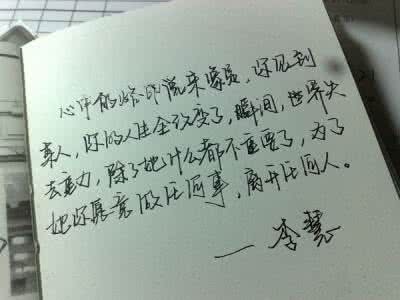 心中的烙印说来像是，你见到
某人，你的人生全改变了，瞬间，世界失
去重力，除了她什么都不重要了，为了
她你愿意做任何事，离开任何人。
— 李慧